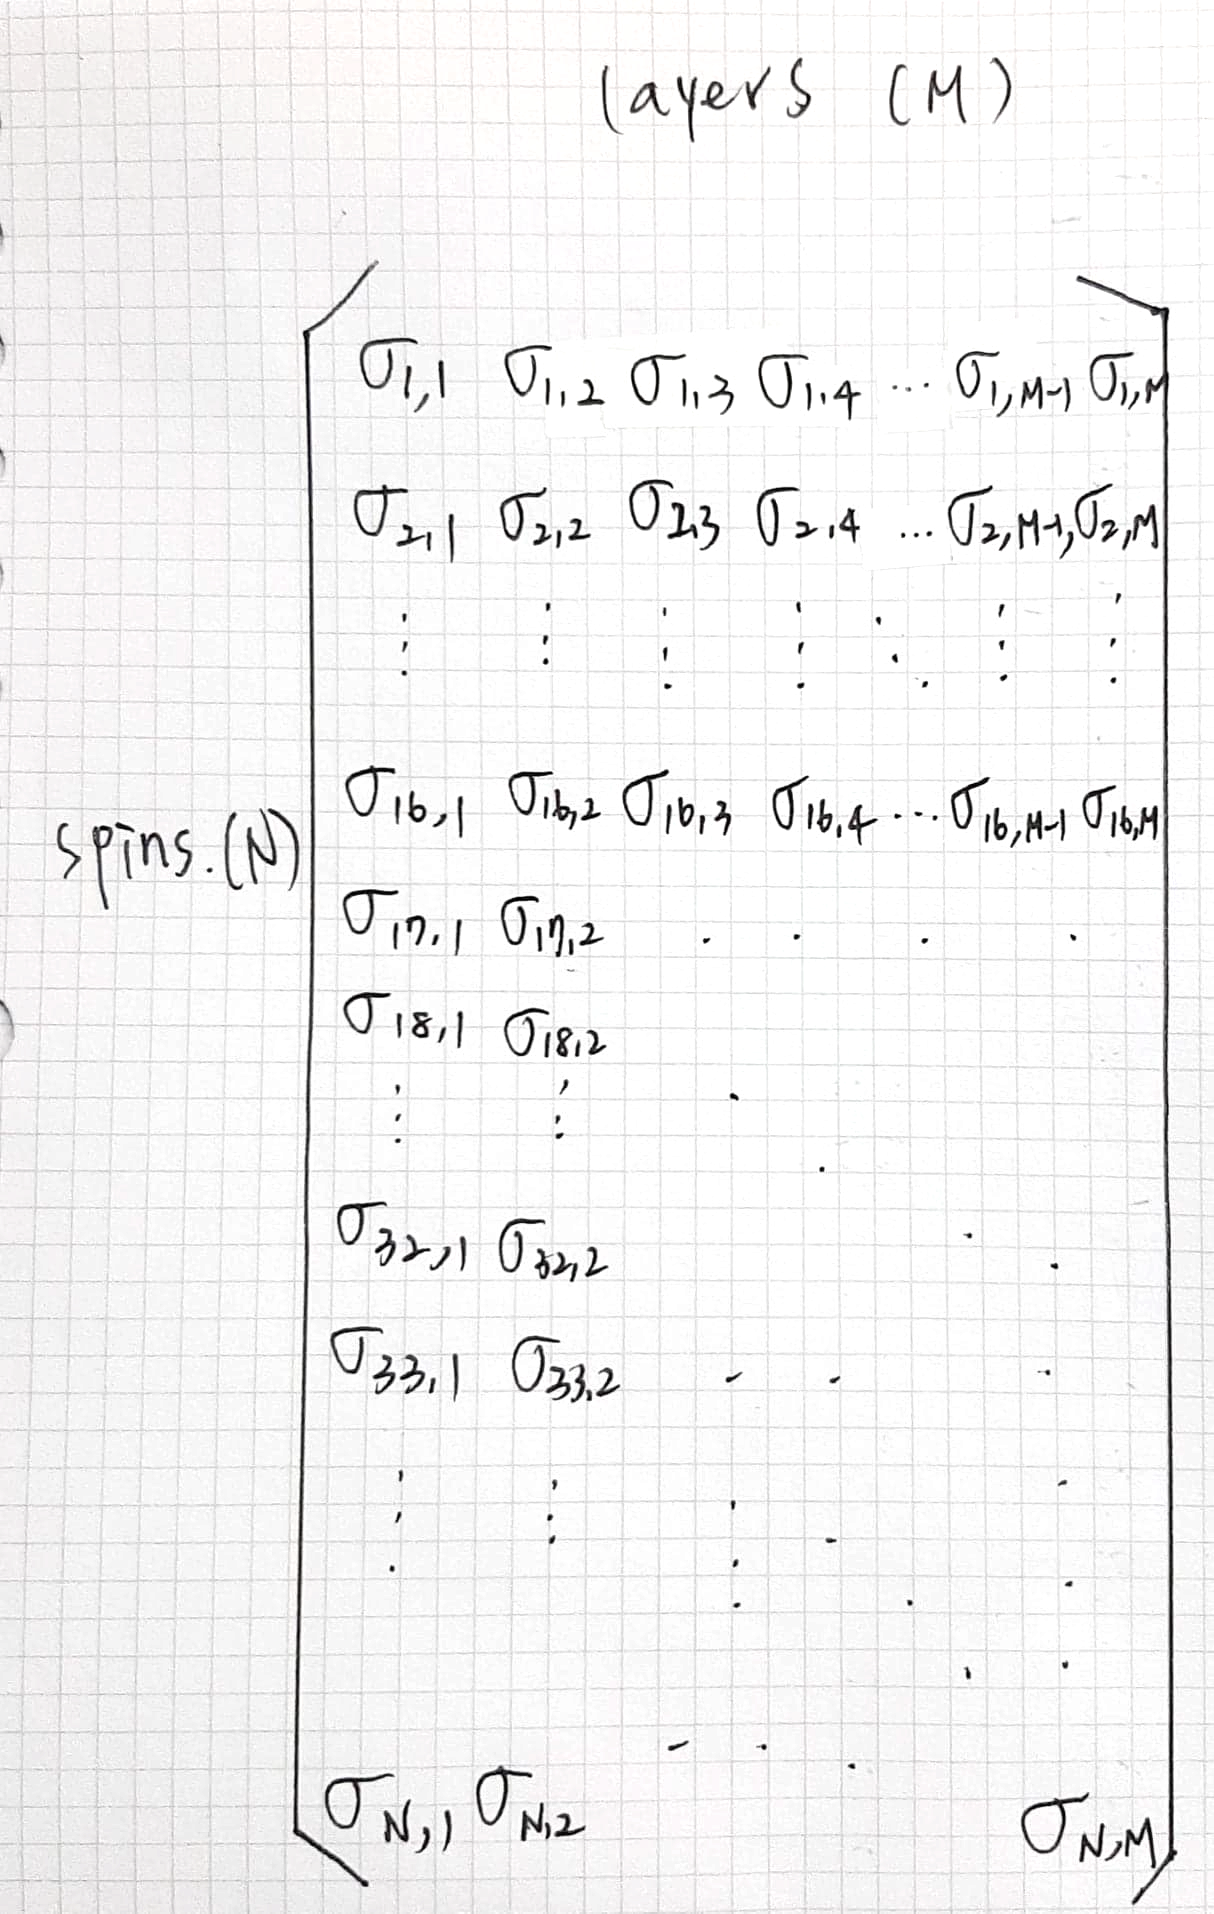 layers (M)
σ1,1 σ1,2 σ1,3 σ1,4 ... σ1,M-1 σ1,M
σ2,1 σ2,2 σ2,3 σ2,4 ... σ2,M-1, σ2,M
σ16,1 σ16,2 σ16,3 σ16,4 ... σ16,M-1 σ16,M
spins.(N)
σ17,1 σ17,2 . . . .
σ18,1 σ18,2
σ32,1 σ32,2
σ33,1 σ33,2
σN,1 σN,2 σN,M